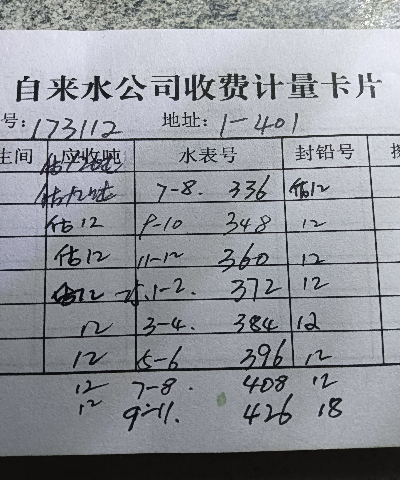 自来水公司收费计量卡片
号: 173112 地址: 1-401
生间 应收吨 水表号 封铅号
7-8. 336 估12
估12 9-10 348 12
估12 11-12 360 12
估12 25.1-2. 372 12
12 3-4. 384 12
12 5-6 396 12
12 7-8. 408 12
12 9-11. 426 18